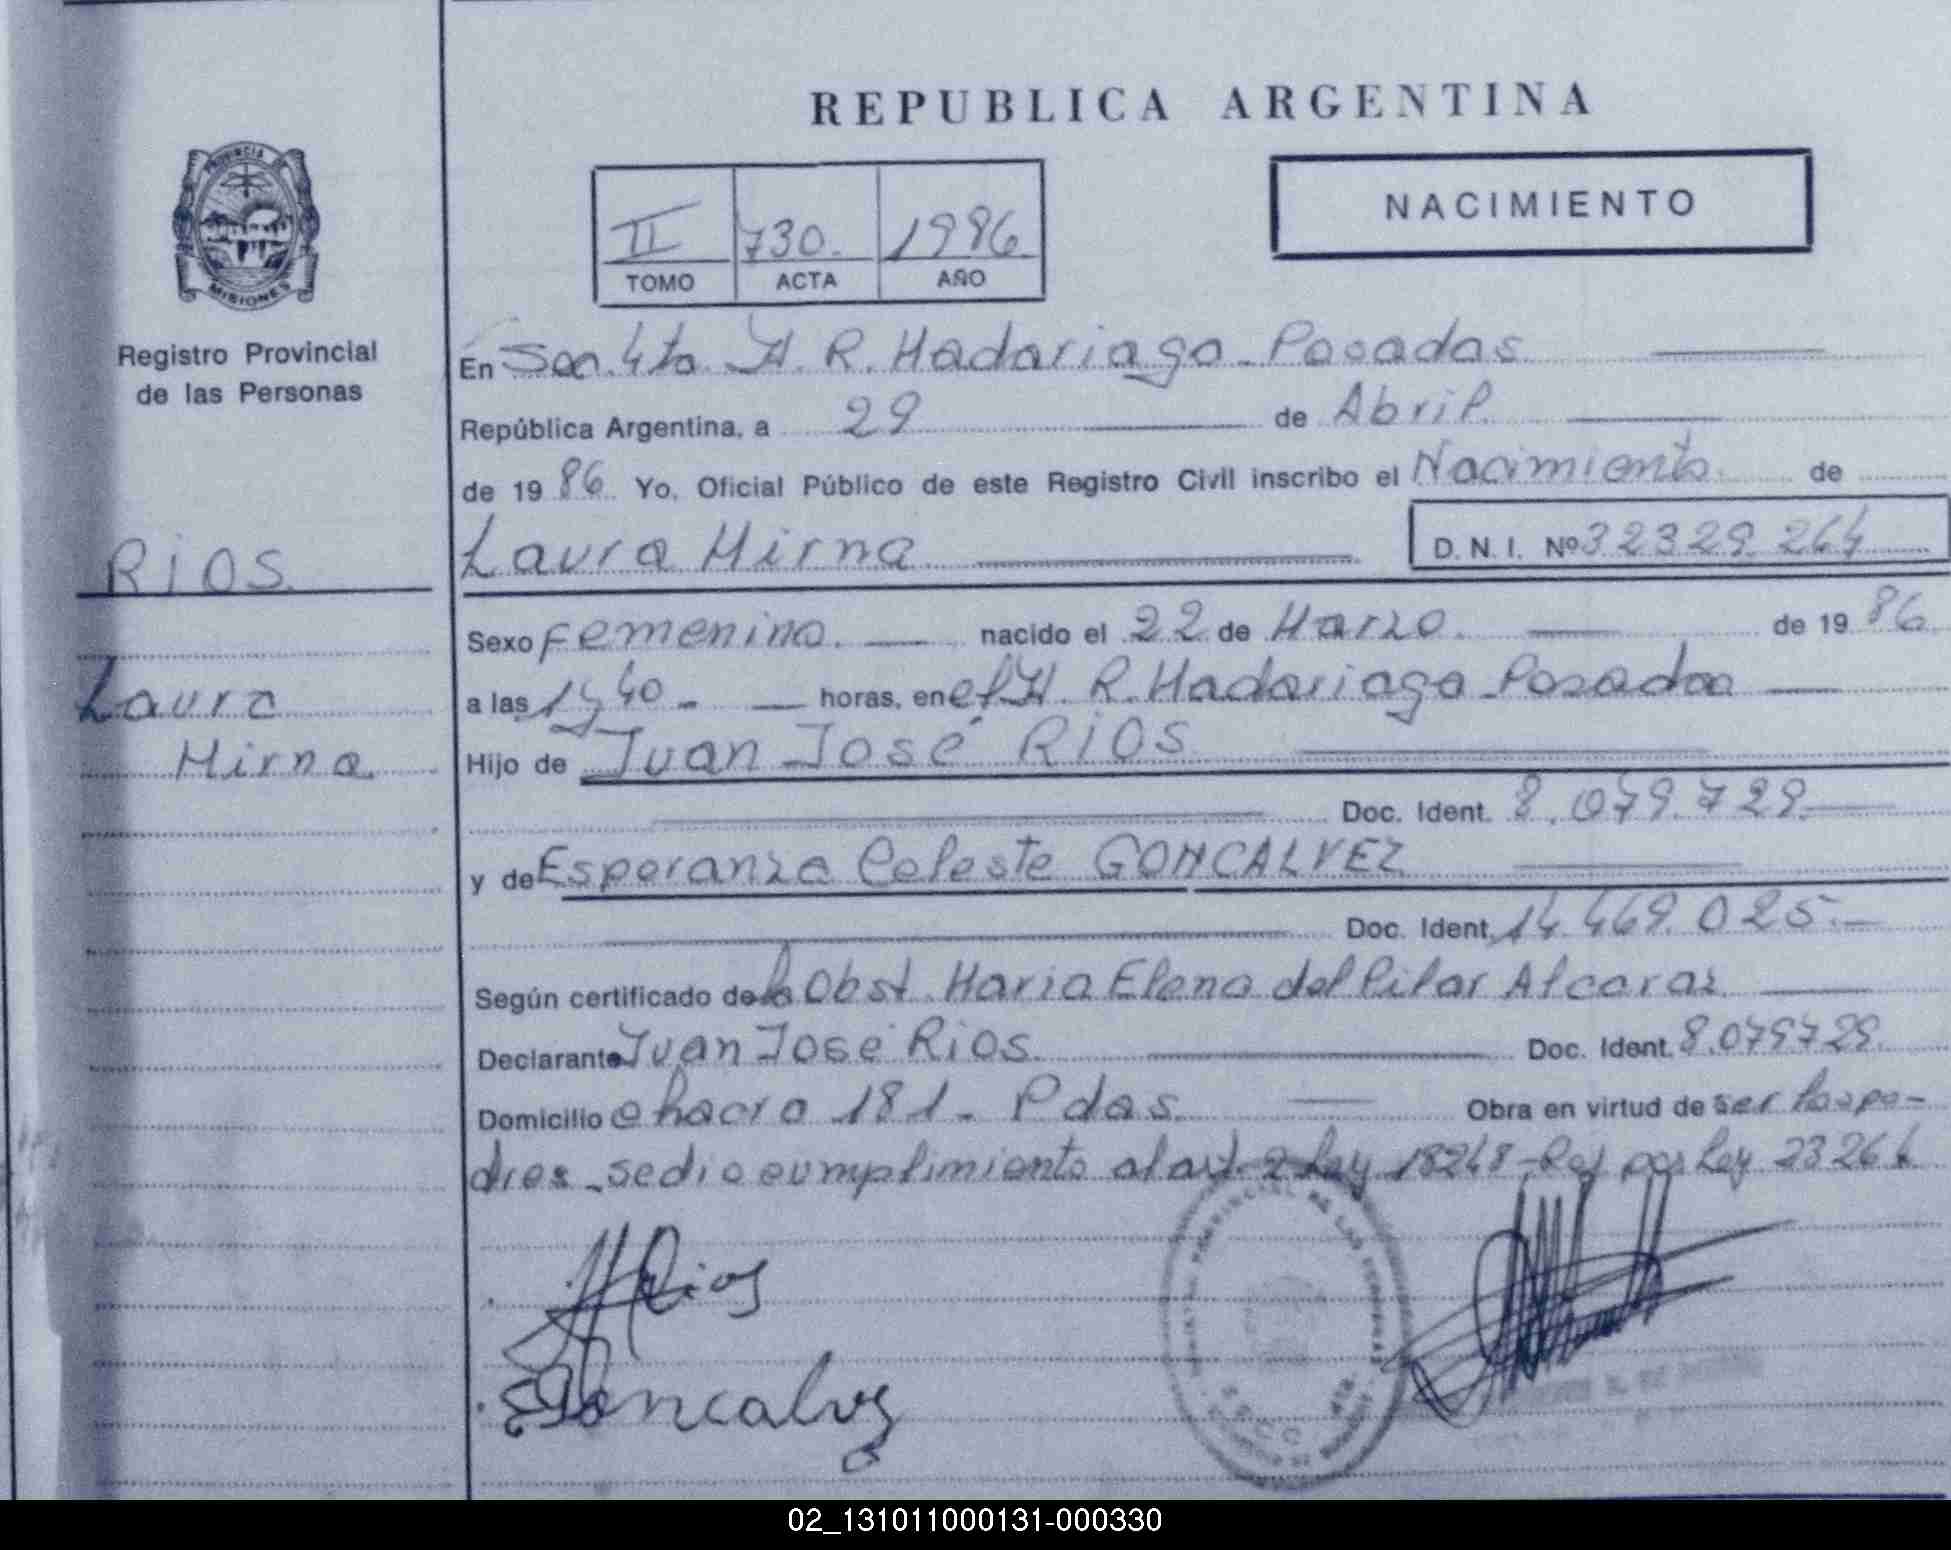 REPUBLICA ARGENTINA
PROVINCIA DE
MISIONES
Registro Provincial
de las Personas
NACIMIENTO
II 730. 1986.
TOMO ACTA AÑO
En Secc. 4ta. H. R. Madariaga - Posadas
República Argentina, a 29 de Abril.
de 19 86. Yo, Oficial Público de este Registro Civil inscribo el Nacimiento de
RIOS.
Laura Mirna
D. N. I. Nº 32329.264
Laura
Mirna
Sexo Femenino. nacido el 22 de Marzo. de 19 86.
a las horas, en el H. R. Madariaga - Posadas
Hijo de Juan José RIOS
Doc. Ident. 8.079.729.
y de Esperanza Celeste GONCALVEZ
Doc. Ident. 14.469.025.-
Según certificado de la Obst. Maria Elena del Pilar Alcaraz
Declarante Juan José Rios. Doc. Ident. 8.079729.
Domicilio chacra 181 - Pdas. Obra en virtud de ser los pa-
dres - se dio cumplimiento al art. 2 Ley 18248 - Ref por Ley 23264
Rios
Goncalvez
02_131011000131-000330